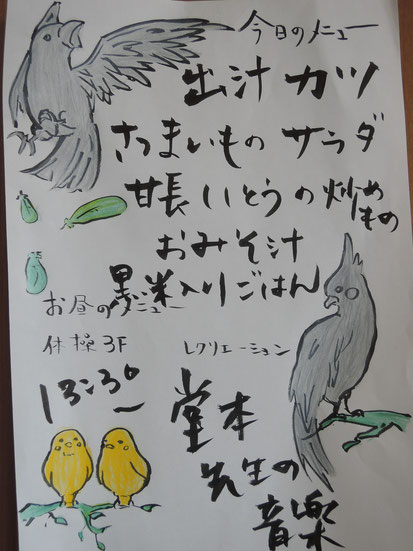 今日のメニュー
出汁カツ
さつまいものサラダ
甘長いとうの炒めもの
おみそ汁
黒米入りごはん
お昼のメニュー
体操3F
レクリエーション
13:30〜
堂本
先生の
音楽